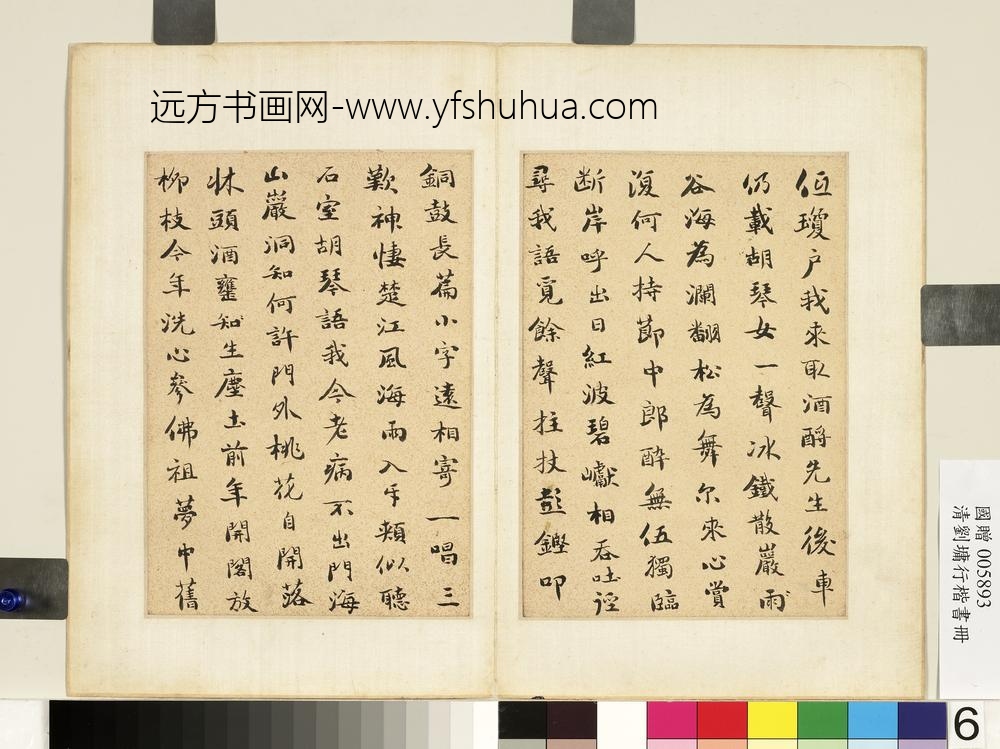 远方书画网-www.yfshuhua.com
伍瓊户我來取酒酹先生後車
仍載胡琴女一聲冰鐵散巖
谷海為瀾翻松為舞尔來心賞
復何人持節中郎醉無伍獨臨
断岸呼出日紅波碧巘相吞吐
尋我語覓餘聲拄杖彭鏗叩
銅鼓長篇小字遠相寄一唱三
歎神悽楚江風海雨入牙頰似聽
石室胡琴語我今老病不出門海
山巖洞知何許門外桃花自開落
牀頭酒甕生塵土前年開閤放
柳枝今年洗心參佛祖夢中舊
國贈 005893
清劉墉行楷書冊
6